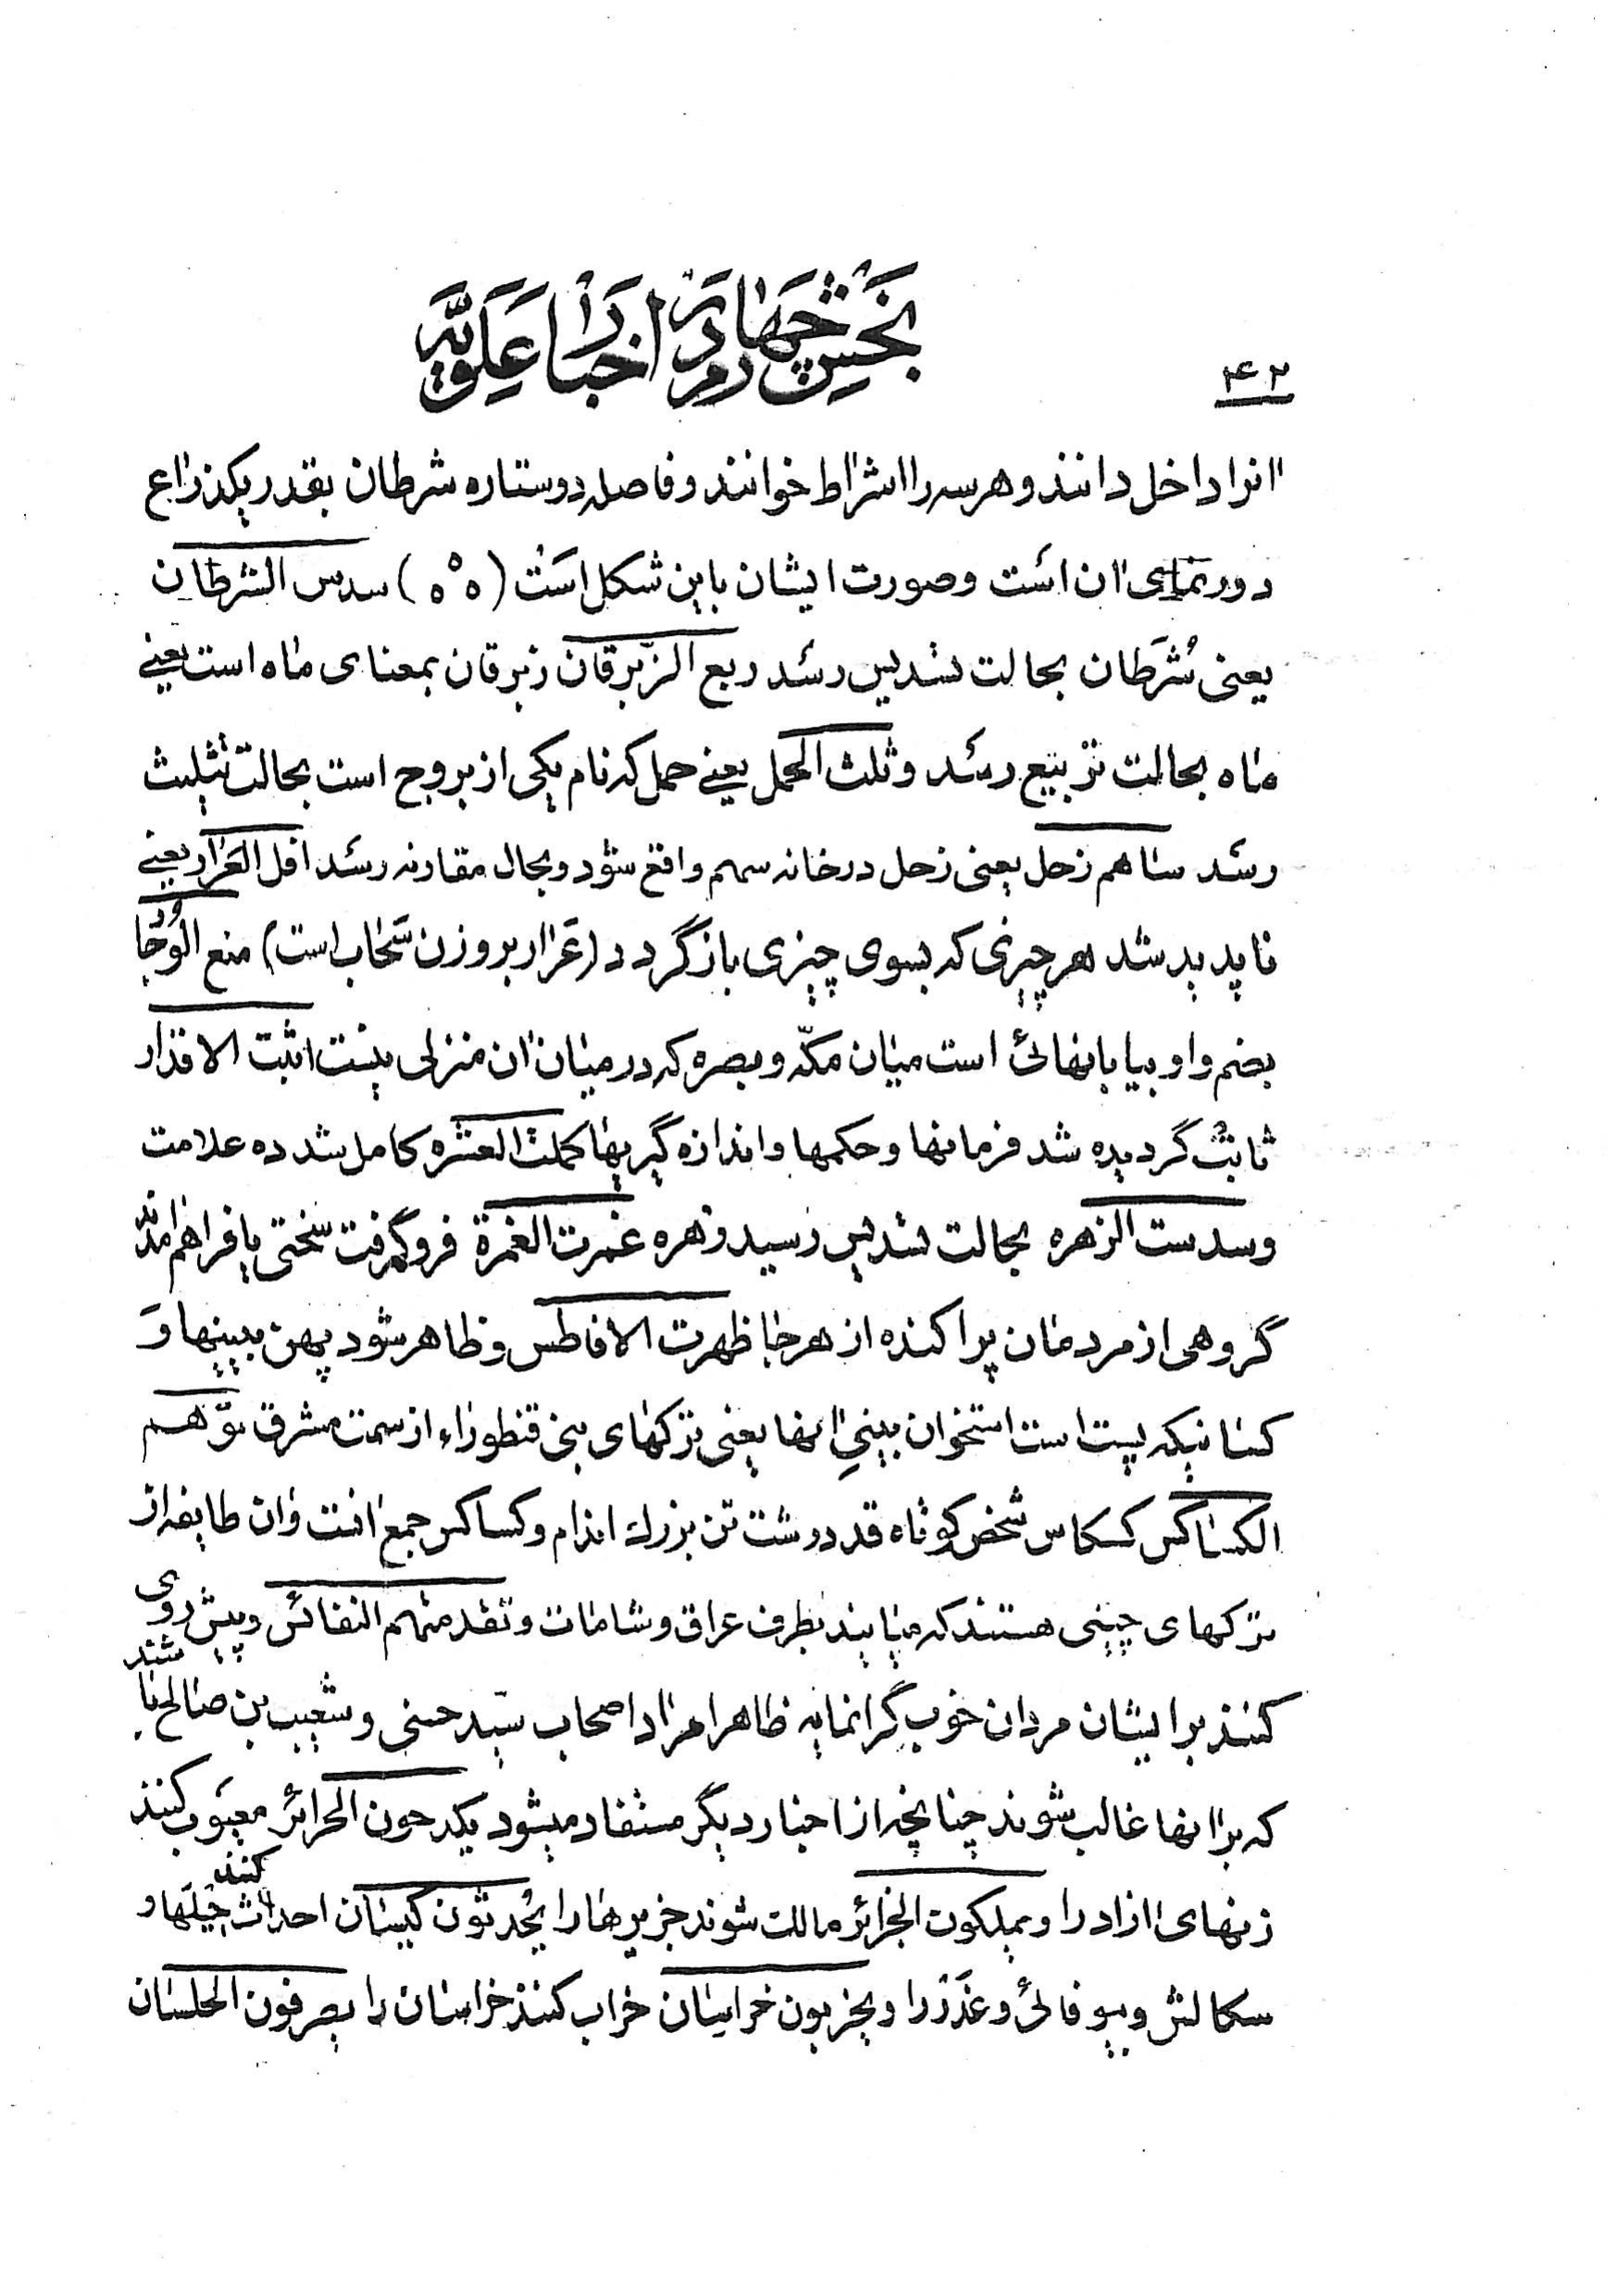 بخش چهارم در اخبار علویه
۴۲
انرا داخل دانند و هر سه را اشراط خوانند و فاصله دو ستاره شرطان بقدر یکذراع
دورنمای ان است و صورت ایشان باین شکل است (ه ه ه) سدس الشرطان
یعنی شَرَطان بحالت تسدیس رسد ربع الزّبرقان زبرقان بمعنای ماه است یعنی
ماه بحالت تربیع رسد و ثلث الحمل یعنی حمل که نام یکی از بروج است بحالت تثلیث
رسد ساهم زحل یعنی زحل در خانه سهم واقع شود و بحال مقارنه رسد افل العَرار یعنی
ناپدید شد هر چیزی که بسوی چیزی باز گردد (عَرار بر وزن سَحاب است) منع الوُجار
بضم واو بیابانهائی است میان مکّه و بصره که در میان ان منزلی نیست اثبت الاقدار
ثابت گردیده شد فرمانها و حکمها و اندازه گیریها کملت العشره کامل شد ده علامت
و سدست الزهره بحالت تسدیس رسید زهره غمرت الغمرة فرو گرفت سختی یا فراهم امدند
گروهی از مردمان پراکنده از هر جا ظهرت الافاطس و ظاهر شود پهن بینیها وَ
کسانیکه پست است استخوان بینیِ انها یعنی ترکهای بنی قنطوراء از سمت مشرق توّهم
الکساکس کسکاس شخص کوتاه قد درشت تن بزرك اندام و کساکس جمع انست و ان طایفه از
ترکهای چینی هستند که میایند بطرف عراق و شامات و تقدمتهم النفائس و پیش روی
کنند بر ایشان مردان خوب گرانمایه ظاهرا مراد اصحاب سیّد حسنی و شعیب بن صالح باشند
که بر انها غالب شوند چنانچه از اخبار دیگر مستفاد میشود یکدحون الحرائر معیوب کنند
زنهای ازاد را و یملکون الجزائر مالك شوند جزیرها را یُحدثون کیسان احداث کنند حیلَها و
سکالش و بیوفائی و غَدَر را و یخربون خراسان خراب کنند خراسان را یصرفون الحلسان